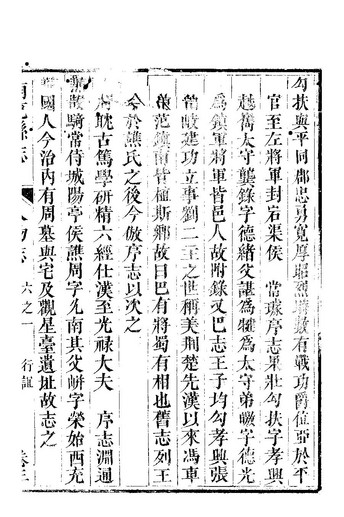 勾扶與平同郡忠勇寬厚昭烈將數有戰功爵位亞於平
官至左將軍封宕渠侯　常璩序志果壯勾扶字孝興
越嶲太守龔祿字德緒父諶犍爲太守弟皦字德光
爲鎭軍將軍皆邑人故附錄又巴志王子均勾孝興張
皆馘建功立事劉二王之世稱美荆楚先漢以來馮車
范鎭南皆植斯鄉故曰巴有將蜀有相也舊志列王
於譙氏之後今倣序志以次之
耽古篤學研精六經仕漢至光祿大夫　序志淵通
散騎常侍城陽亭侯譙周字允南其父𡸁字榮始西充
國人今治內有周墓與宅及觀星臺遺址故志之
志　人物志　六之一　行誼　卷三